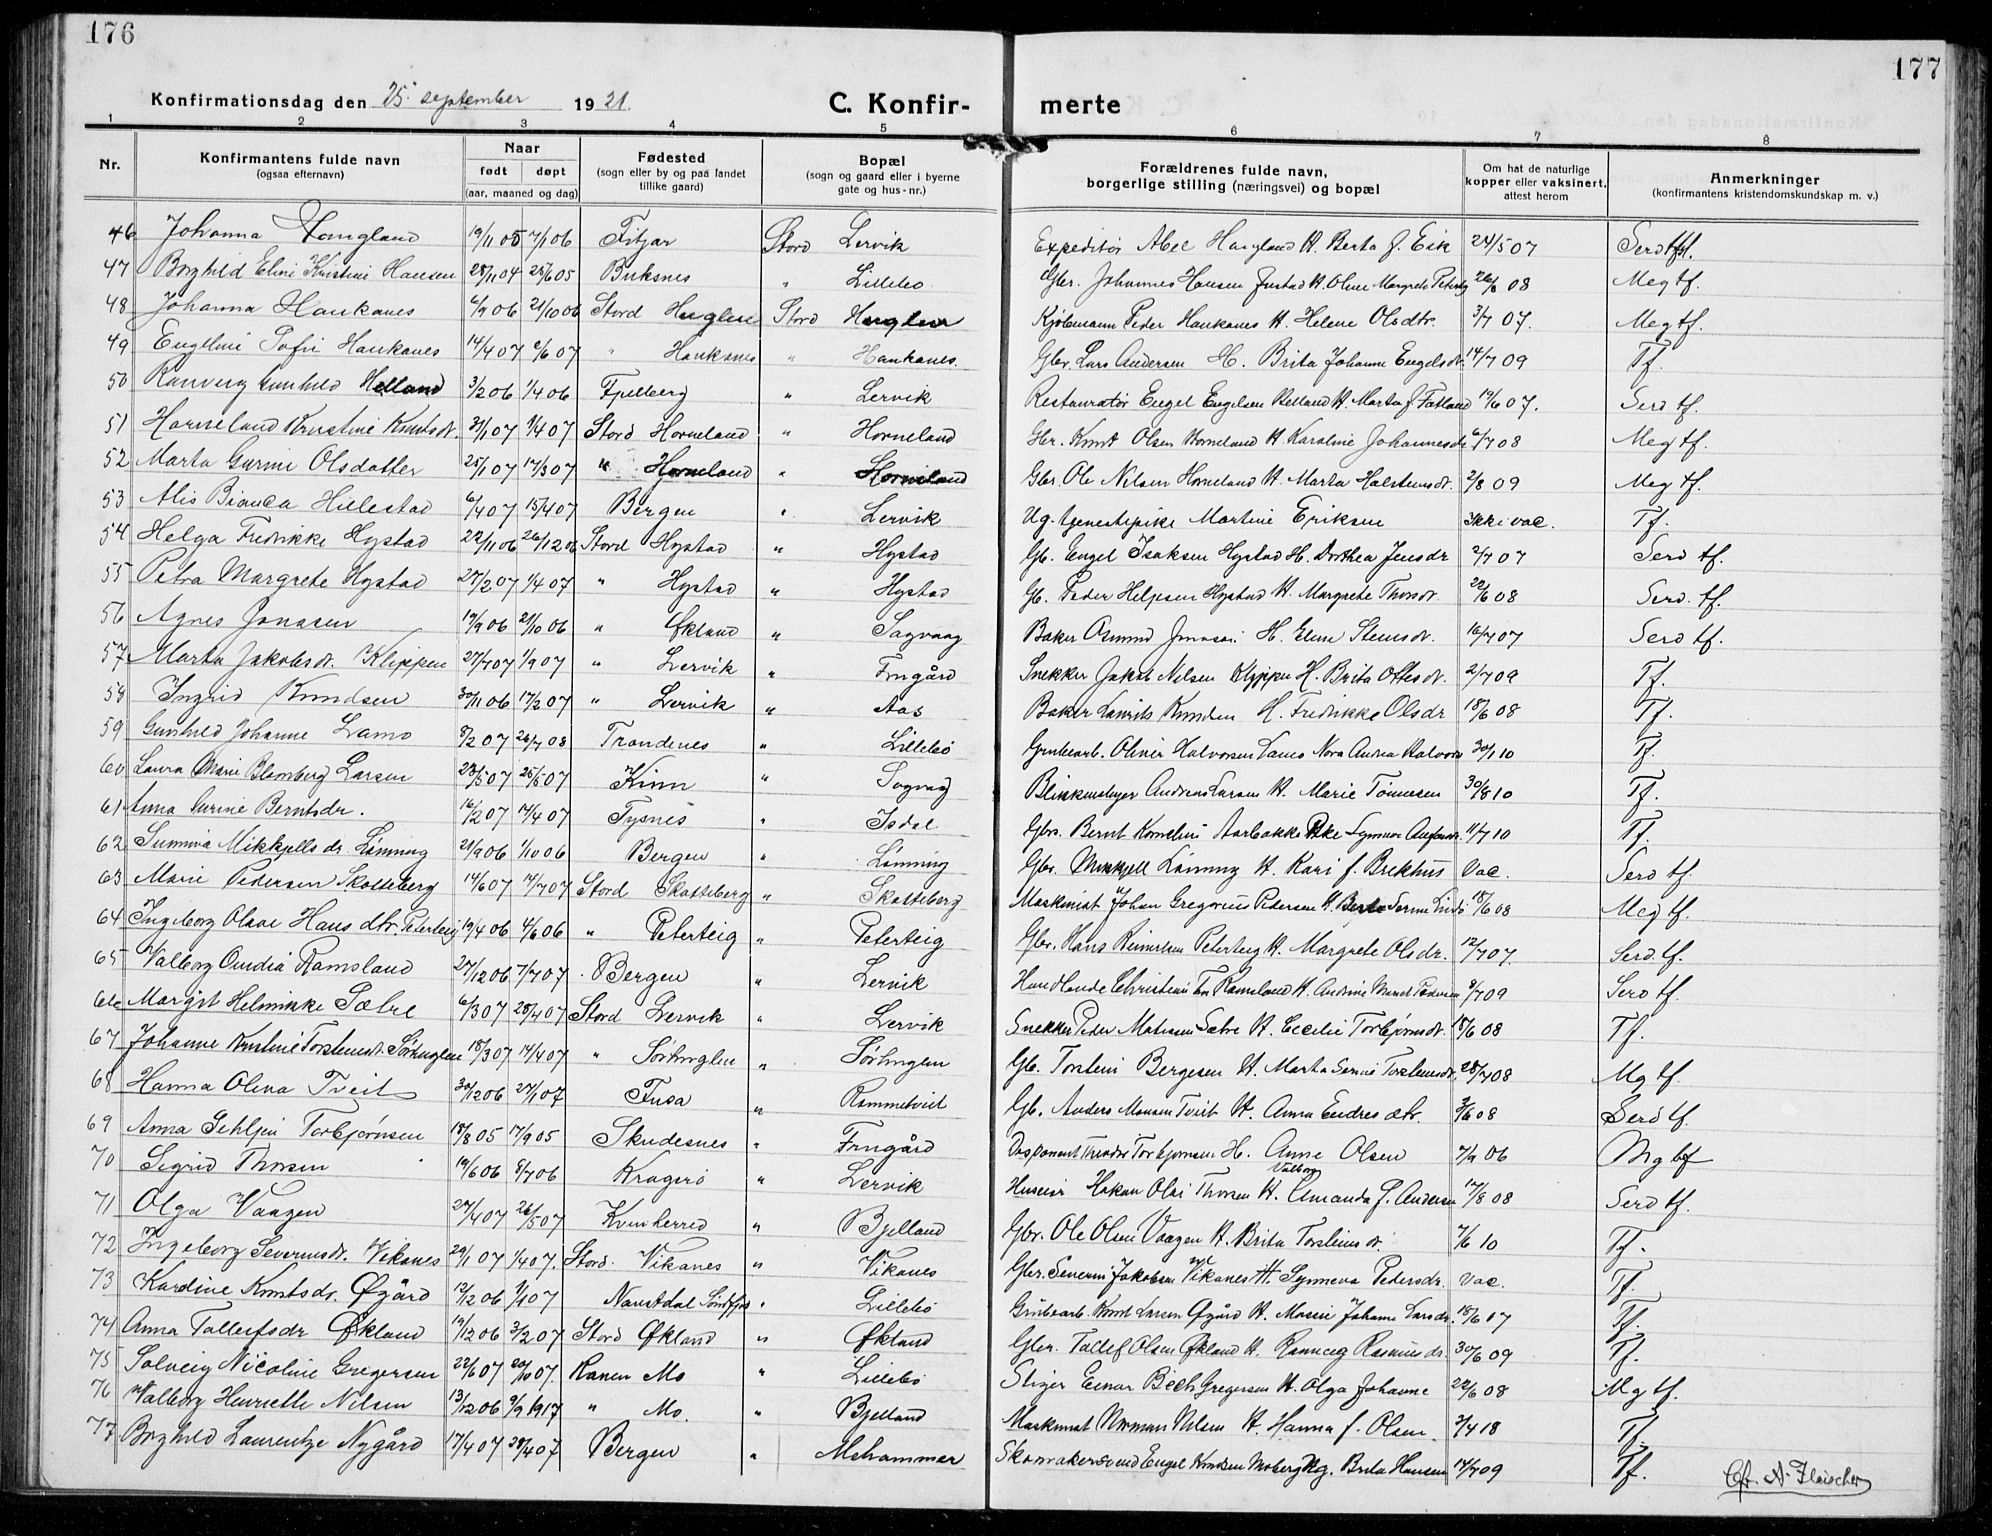 176
177
Konfirmationsdag den 25. september 1921.
C. Konfir-
merte
1 2 3 4 5 6 7 8
Nr.
Konfirmantens fulde navn
(ogsaa efternavn)
Naar
født døpt
(aar, maaned og dag)
Fødested
(sogn eller by og paa landet
tillike gaard)
Bopæl
(sogn og gaard eller i byerne
gate og hus-nr.)
Forældrenes fulde navn,
borgerlige stilling (næringsvei) og bopæl
Om hat de naturlige
kopper eller vaksinert,
attest herom
Anmerkninger
(konfirmantens kristendomskundskap m. v.)
46 Johanna 19/11 05 7/1 06 Fitjar Stord Lervik Expeditør Abel H. Berta f. Eik 24/5 07
47 Borghild Eline Kristine Hansen 28/11 04 25/6 05 Buksnes " Lillebø Gbr. Johannes Hansen H. Oline Margrete 08 Meg tf.
48 Johanna Haukanes 6/9 06 21/10 06 Stord Huglen Stord Huglen Kjøbmann Peder Haukanes H. Helene Olsdtr. 3/7 07. Meg tf.
49 Engeline Sofie Haukanes 14/4 07 2/6 07 " Haukanes " Haukanes. Gbr. Lars Andersen H. Brita Johanne Engelsdtr. 14/7 09 Tf.
50 Ranveig Gunhild Helland 3/2 06 1/4 06 Fjelberg " Lervik Restauratør Engel Engelsen Helland H. Marta f. Tætland 19/6 07. Serd tf.
51 Horneland Kristine Knutsdt. 31/1 07 1/4 07 Stord Horneland " Horneland Gbr. Knut Olsen Horneland H. Karoline Johannesdtr 6/7 08 Meg tf.
52 Marta Gurine Olsdatter 25/1 07 17/3 07 " Horneland " Horneland Gbr. Ole Nilsen Horneland H. Marta Halsteinsdt. 2/8 09 Meg tf.
53 Alis Bianca Hillestad 6/4 07 15/4 07 Bergen " Lervik Ug. tjenestepike Martine Eriksen Ikke vac. Tf.
54 Helga Fredrikke Hystad 22/11 06 26/12 06 Stord Hystad " Hystad Gb. Engel Isaksen Hystad H. Dorthea Jensdr 2/7 07 Serd tf.
55 Petra Margrete Hystad 27/2 07 1/4 07 " Hystad " Hystad Gb. Peder Helgesen Hystad H. Margrete Thorsdt. 22/6 08 Serd. tf.
56 Agnes Jonasen 17/9 06 21/10 06 " Økland " Sagvaag Baker Asmund Jonasen H. Eline Steinsdt. 16/7 07 Serd tf.
57 Marta Jakobsdt. Klippen 27/7 07 1/9 07 " Lervik " Frugård Snekker Jakob Nilsen Klippen H. Brita Ottesdt. 2/7 09 Tf.
58 Ingrid Knudsen 30/11 06 17/2 07 " Lervik " Aas Baker Laurits Knudsen H. Fredrikke Olsdr 18/6 08 Tf.
59 Gunhild Johanne Lamo 8/2 07 26/7 08 Trondenes " Lillebø Grubearb. Oliver Halvorsen Lamo Nora Andrea 30/1 10 Tf.
60 Laura Marie Blomberg Larsen 23/5 07 25/5 07 Kinn " Sagvag Andreas Larsen H. Marie Tønnesen 30/8 10 Tf.
61 Anna Gurine Berntsdr. 16/2 07 14/4 07 Tysnes " Isdal Gbr. Bernt Kornelius Aarbakke 11/7 10 Tf.
62 Sunniva Mikkjellsdr. Lønning 21/9 06 1/10 06 Bergen " Lønning Gbr. Mikkjell Lønning H. Kari f. Brekhus Vac. Serd tf.
63 Marie Pedersen Skatteberg 14/6 07 14/7 07 Stord Skatteberg " Skatteberg Maskinist Johan Gregorius Pedersen H. Berta 18/6 08 Meg tf.
64 Ingeborg Olave Hansdtr. Peterteig 19/4 06 4/6 06 " Peterteig " Peterteig Gbr. Hans Reinertsen Peterteig H. Margrete Olsdr. 12/7 07. Serd. tf.
65 Valborg Ovidia Ramsland 27/12 06 7/7 07 Bergen " Lervik Handlende Christian Ramsland H. Andrine Pedersen 8/7 09 Serd tf.
66 Margit Helmikke Sætre 6/3 07 28/4 07 Stord Lervik " Lervik Snekker Peder Matiasen Sætre H. Cecilie Torbjørnsdt. 18/6 08 Tf.
67 Johanne Kristine Torsteinsdt. Sørhuglen 18/3 07 14/4 07 " Sørhuglen " Sørhuglen Gb. Torstein Bergesen H. Marta Serine Torsteinsdt. 28/7 08 Mg tf.
68 Hanna Olena Tveit 30/12 06 27/1 07 Fusa " Rommetveit Gb. Anders Monsen Tveit H. Anna Endresdtr. 3/6 08 Serd tf.
69 Anna Torbjørnsen 18/8 05 17/9 05 Skudesnes " Frugård Disponent Theodor Torbjørnsen H. Anne Olsen 7/9 06 Mg
70 Sigrid Thorsen 19/6 06 8/7 06 Kragerø " Lervik Huseier Hakon Olai Thorsen H. Valborg Amanda f. Andersen 17/8 08 Serd tf.
71 Olga Vaagen 27/4 07 26/5 07 Kvinherred " Bjelland Gbr. Ole Olsen Vaagen H. Brita Torsteinsdt. 7/6 10 Tf.
72 Ingeborg Severinsdt. Vikanes 29/1 07 1/4 07. Stord Vikanes " Vikanes Gbr. Severin Jakobsen Vikanes H. Synneva Pedersdr. Vac. Tf.
73 Kardine Knutsdr. Øgård 12/12 06 1/1 07 Naustdal Søndfjord " Lillebø Grubearb. Knut Larsen Øgård H. Mosine Johanne Larsdr. 18/6 17 Tf.
74 Anna Tollefsdr Økland 19/12 06 3/2 07 Stord Økland " Økland Gbr. Tollef Olsen Økland H. Ranveig Rasmusdr. 30/6 09 Tf.
75 Solveig Nicoline Gregersen 22/6 07 20/10 07. Ranen Mo " Lillebø Stiger Einar Bech Gregersen H. Olga Johanne 22/6 08 Mg tf.
76 Valborg Henriette Nilsen 13/12 06 9/9 1917 " Mo. " Bjelland Maskinist Norman Nilsen H. Hanna f. Olsen. 7/4 18 Tf.
77 Borghild Laurentze Nygård 17/4 07 28/4 07 Bergen " Mehammer Skomakersvend Engel Knudsen Moberg Ug. Brita Hansen 14/7 09 Tf.
Chr. A. Fleischer